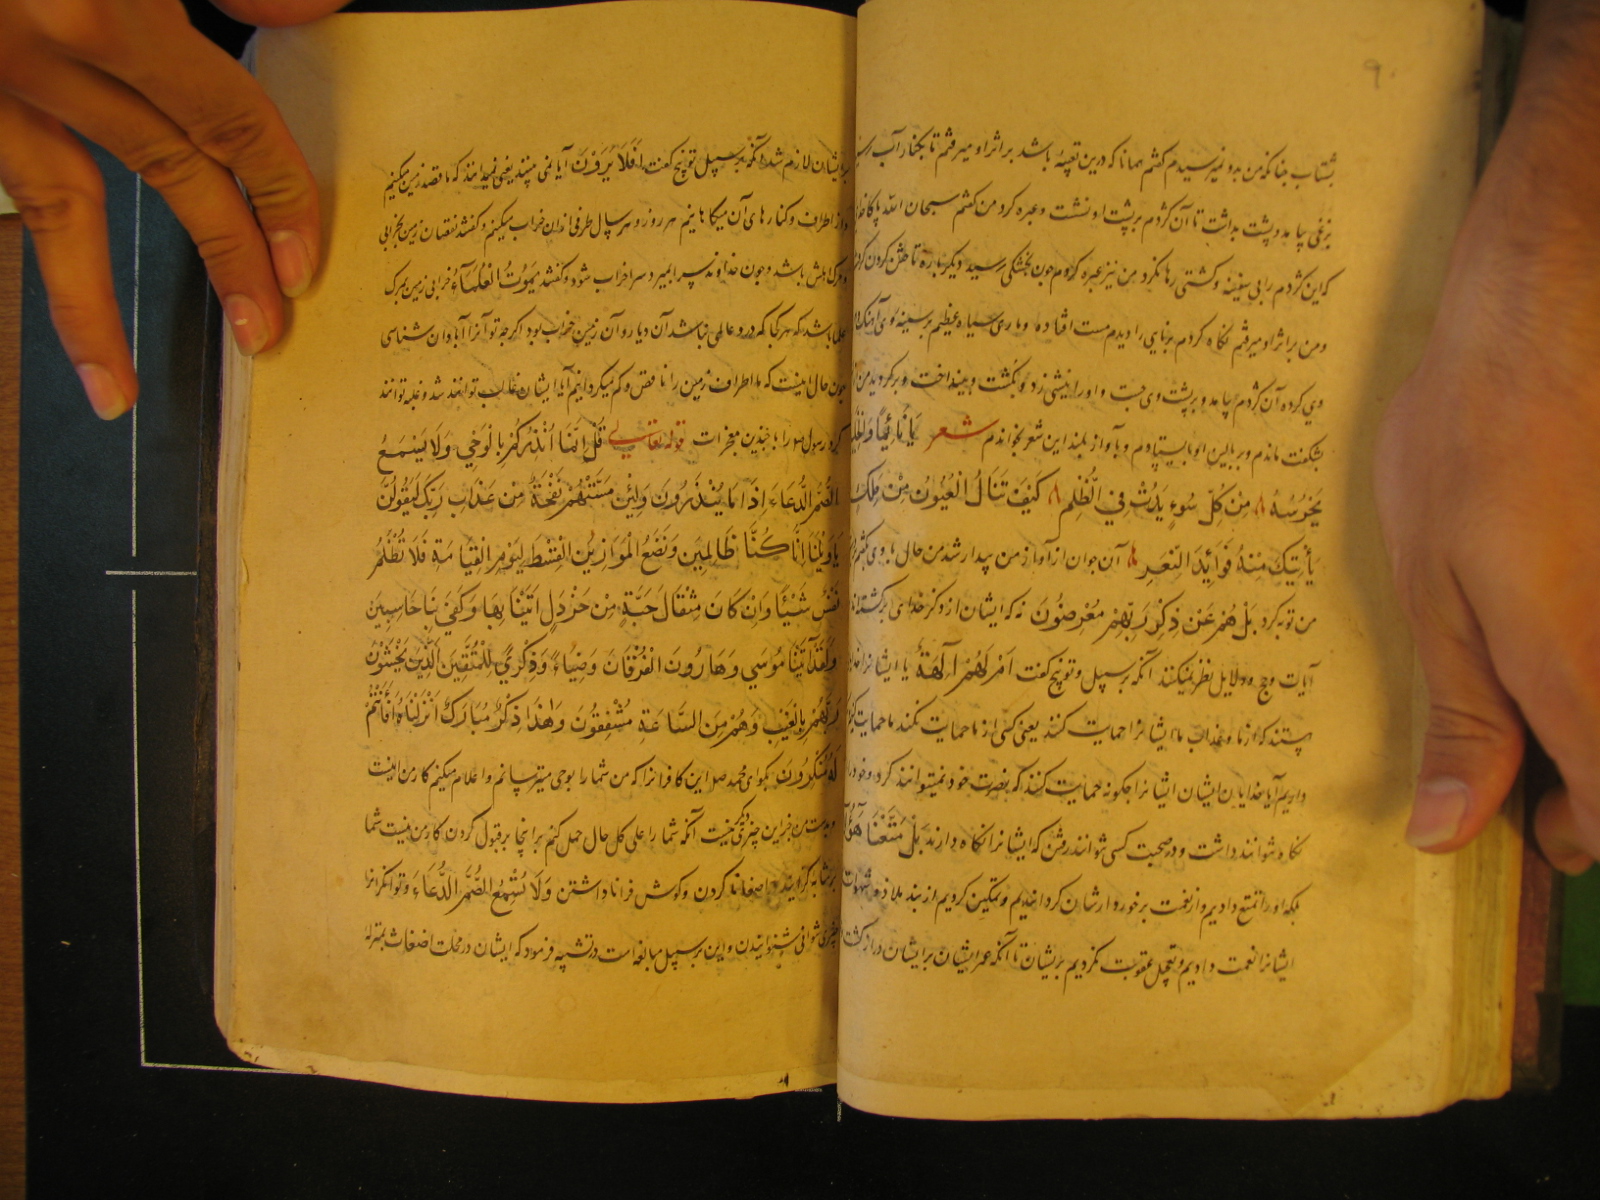 ۹۰
بشتاب چنانکه من بدو نمیرسیدم گفتم همانا که درین تعبیه باشد بر اثر او میرفتم تا بکنار آب رسید
بزغی بیامد و پشت بداشت تا آن کژدم بر پشت او نشست و عبره کرد من گفتم سبحان الله پاکا خدایا
که این کژدم را بی سفینه و کشتی رها نکرد من نیز عبره کردم چون بخشکی رسید دیگرباره تاختن کردن گرفت
و من بر اثر او میرفتم نگاه کردم برنایی را دیدم مست افتاده و ماری سیاه عظیم بر سینه او آهنک
وی کرده آن کژدم بیامد و بر پشت وی جست و او را نیشی زد و بکشت و بینداخت و برگردید من از
شگفت ماندم و بر بالین او بایستادم و بآواز بلند این شعر بخواندم شعر یَا نَائِمًا وَ
یَحْرُسُهُ مِنْ کُلِّ سُوءٍ یَدُبُّ فِي الظُّلَمِ کَیْفَ تَنَالُ الْعُیُونُ مِنْ مَلِكٍ
یَأْتِیكَ مِنْهُ فَوَائِدُ النِّعَمِ آن جوان از آواز من بیدار شد من حال با وی بگفتم
من توبه کرد بَلْ هُمْ عَنْ ذِکْرِ رَبِّهِمْ مُعْرِضُونَ نه که ایشان از ذکر خدای برگشته‌اند
آیات و حجج و دلایل نظر نمیکنند آنگه بر سبیل و توبیخ گفت اَمْ لَهُمْ آلِهَةٌ یا ایشانرا خدایان
هستند که از ما و عذاب ما ایشانرا حمایت کنند یعنی کسی از ما حمایت نکند ما حمایت
داریم آیا خدایان ایشان ایشانرا چگونه حمایت کنند که بنصرت خود نمیتوانند کرد و خود را
نگاه نتوانند داشت و در صحبت کسی نتوانند رفتن که ایشانرا نگاه دارند بَلْ مَتَّعْنَا هَؤُلَآ
بلکه او را تمتع دادیم و از نعمت برخوردارشان گردانیدیم و تمکین کردیم از بند ملاذ و شهوات
ایشانرا نعمت دادیم و تعجیل عقوبت نکردیم بریشان تا آنکه عمر ایشان بر ایشان دراز گشت
بر ایشان لازم شد آنگه بر سبیل توبیخ گفت اَفَلَا یَرَوْنَ آیا نمی بینند یعنی نمیدانند که ما قصد زمین میکنیم
و از اطراف و کنارهای آن میکاهانیم هر روز و هر سال طرفی از آن خراب میکنیم و گفتند نقصان زمین بخرابی
و مرگ اهلش باشد و چون خداوند سرا بمیرد سرا خراب شود و گفتند بِمَوْتِ الْعُلَمَاءِ خرابی زمین بمرگ
علما باشد که هر کجا که درو عالمی نباشد آن دیار و آن زمین خراب بود اگرچه تو آنرا آبادان شناسی
چون حال اینست که ما اطراف زمین را ناقص و کم میگردانیم آیا ایشان غالب توانند شد و غلبه توانند
کرد رسول ص را با چندین معجزات قوله تعالی قُلْ اِنَّمَا اُنْذِرُکُمْ بِالْوَحْيِ وَلَا یَسْمَعُ
الصُّمُّ الدُّعَاءَ اِذَا مَا یُنْذَرُونَ وَلَئِنْ مَسَّتْهُمْ نَفْحَةٌ مِنْ عَذَابِ رَبِّكَ لَیَقُولُنَّ
یَاوَیْلَنَا اِنَّا کُنَّا ظَالِمِینَ وَنَضَعُ الْمَوَازِینَ الْقِسْطَ لِیَوْمِ الْقِیَامَةِ فَلَا تُظْلَمُ
نَفْسٌ شَیْئًا وَاِنْ کَانَ مِثْقَالَ حَبَّةٍ مِنْ خَرْدَلٍ اَتَیْنَا بِهَا وَکَفَی بِنَا حَاسِبِینَ
وَلَقَدْ آتَیْنَا مُوسَی وَهَارُونَ الْفُرْقَانَ وَضِیَاءً وَذِکْرًی لِلْمُتَّقِینَ الَّذِینَ یَخْشَوْنَ
رَبَّهُمْ بِالْغَیْبِ وَهُمْ مِنَ السَّاعَةِ مُشْفِقُونَ وَهَذَا ذِکْرٌ مُبَارَكٌ اَنْزَلْنَاهُ اَفَاَنْتُمْ
لَهُ مُنْکِرُونَ بگو ای محمد صلم این کافرانرا که من شما را بوحی میترسانم و اعلام میکنم کار من اینست
و بدست من جز این چیزی دیگر نیست آنگه شما را علی کل حال حمل کنم بر ایجا بر قبول کردن کار من نیست شما
گرایید و اصغا نا کردن و گوش فرا ناداشتن وَلَا یَسْمَعُ الصُّمُّ الدُّعَاءَ و تو ای کرانرا
چیزی نتوانی شنوانیدن و این بر سبیل مبالغه است در تشبیه فرمود که ایشان در محلت اصغاث بمنزله